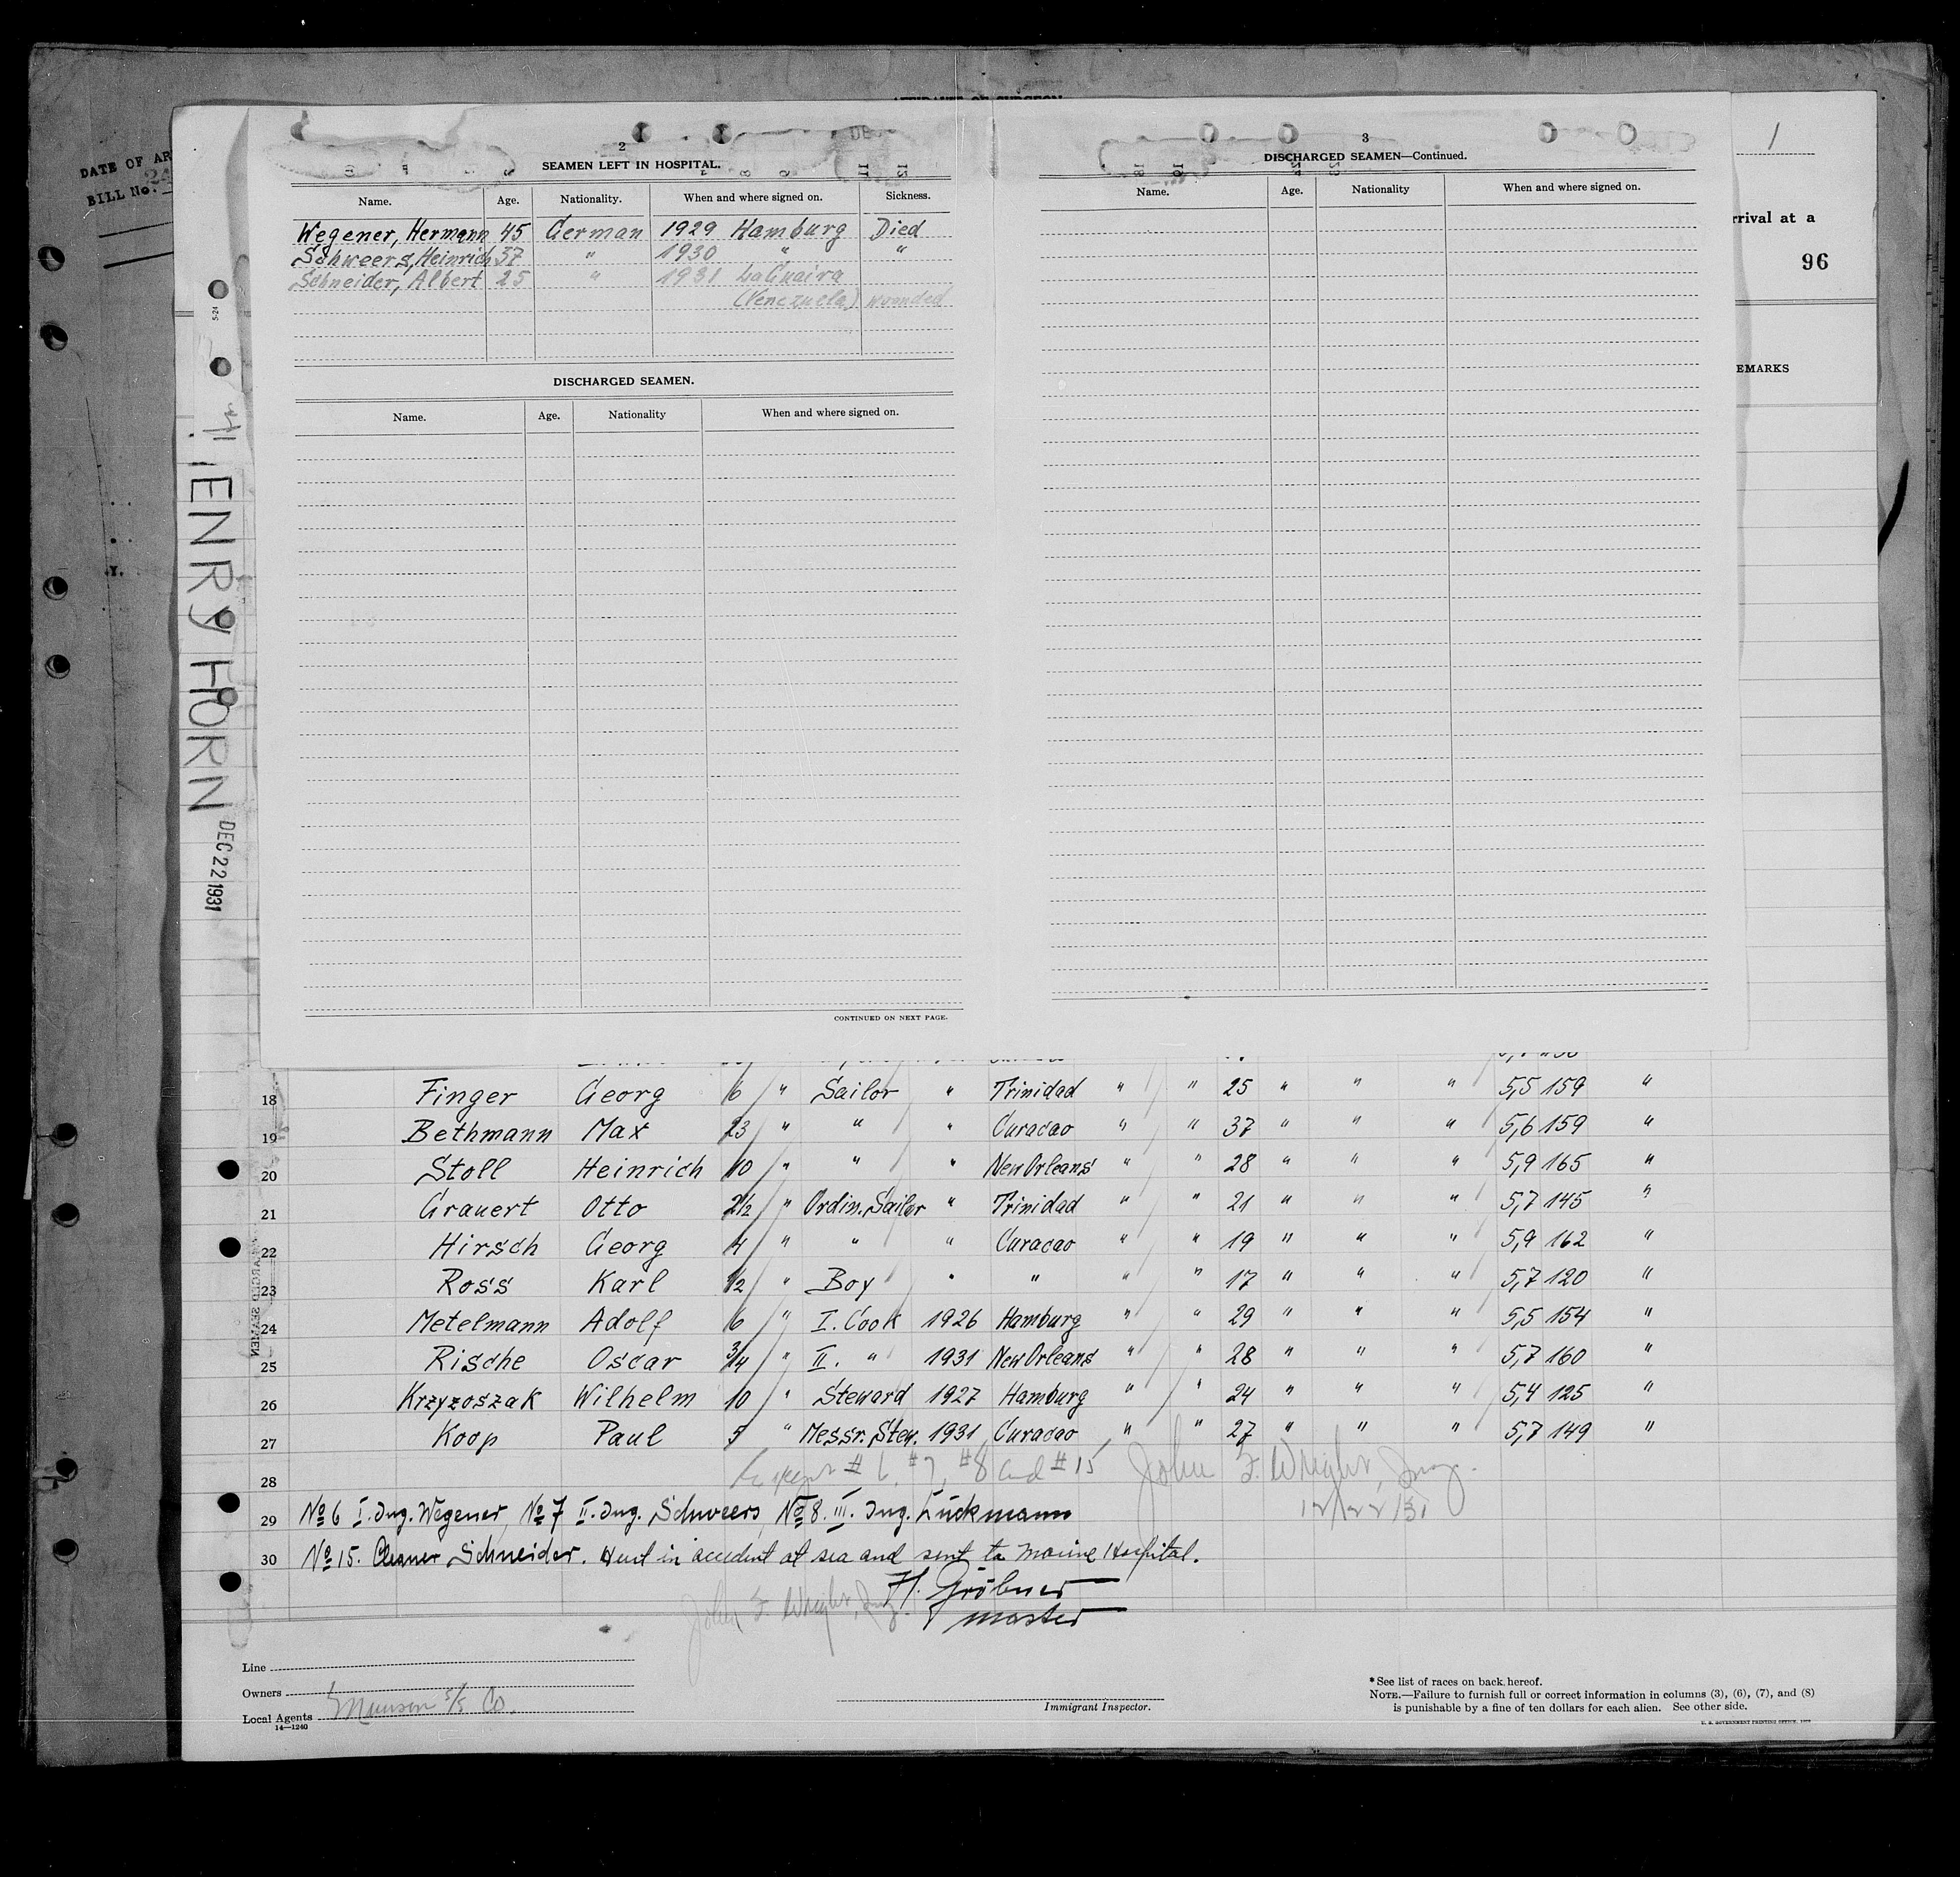 DATE OF AR
BILL No.
1
rrival at a
96
EMARKS
HENRY HORN
DEC 22 1931
5-24
2
SEAMEN LEFT IN HOSPITAL.
Name. Age. Nationality. When and where signed on. Sickness.
Wegener, Hermann 45 German 1929 Hamburg Died
Schweers, Heinrich 37 " 1930 " "
Schneider, Albert 25 " 1931 La Guaira
(Venezuela) wounded
DISCHARGED SEAMEN.
Name. Age. Nationality When and where signed on.
CONTINUED ON NEXT PAGE.
3
DISCHARGED SEAMEN—Continued.
Name. Age. Nationality When and where signed on.
18 Finger Georg 6 " Sailor " Trinidad " " 25 " " " 5,5 159 "
19 Bethmann Max 23 " " " Curacao " " 37 " " " 5,6 159 "
20 Stoll Heinrich 10 " " " New Orleans " " 28 " " " 5,9 165 "
21 Grauert Otto 2½ " Ordin. Sailor " Trinidad " " 21 " " " 5,7 145 "
22 Hirsch Georg 4 " " " Curacao " " 19 " " " 5,9 162 "
23 Ross Karl ½ " Boy " " " " 17 " " " 5,7 120 "
24 Metelmann Adolf 6 " I. Cook 1926 Hamburg " " 29 " " " 5,5 154 "
25 Rische Oscar ¾ " II. " 1931 New Orleans " " 28 " " " 5,7 160 "
26 Krzyzoszak Wilhelm 10 " Steward 1927 Hamburg " " 24 " " " 5,4 125 "
27 Koop Paul 5 " Messr. Stew. 1931 Curacao " " 27 " " " 5,7 149 "
28 Except # 6, #7, #8 and #15 John F. Wright, Insp.
12/22/31
29 No 6 I. Ing. Wegener, No 7 II. Ing. Schweers, No 8. III. Ing. Lückmann
30 No 15. Cleaner Schneider. Hurt in accident at sea and sent to Marine Hospital.
H. Gröbner
master
John F. Wright, Insp.
Line
Owners
Local Agents Munson S/S Co.
14—1240
Immigrant Inspector.
* See list of races on back hereof.
NOTE.—Failure to furnish full or correct information in columns (3), (6), (7), and (8)
is punishable by a fine of ten dollars for each alien. See other side.
U. S. GOVERNMENT PRINTING OFFICE